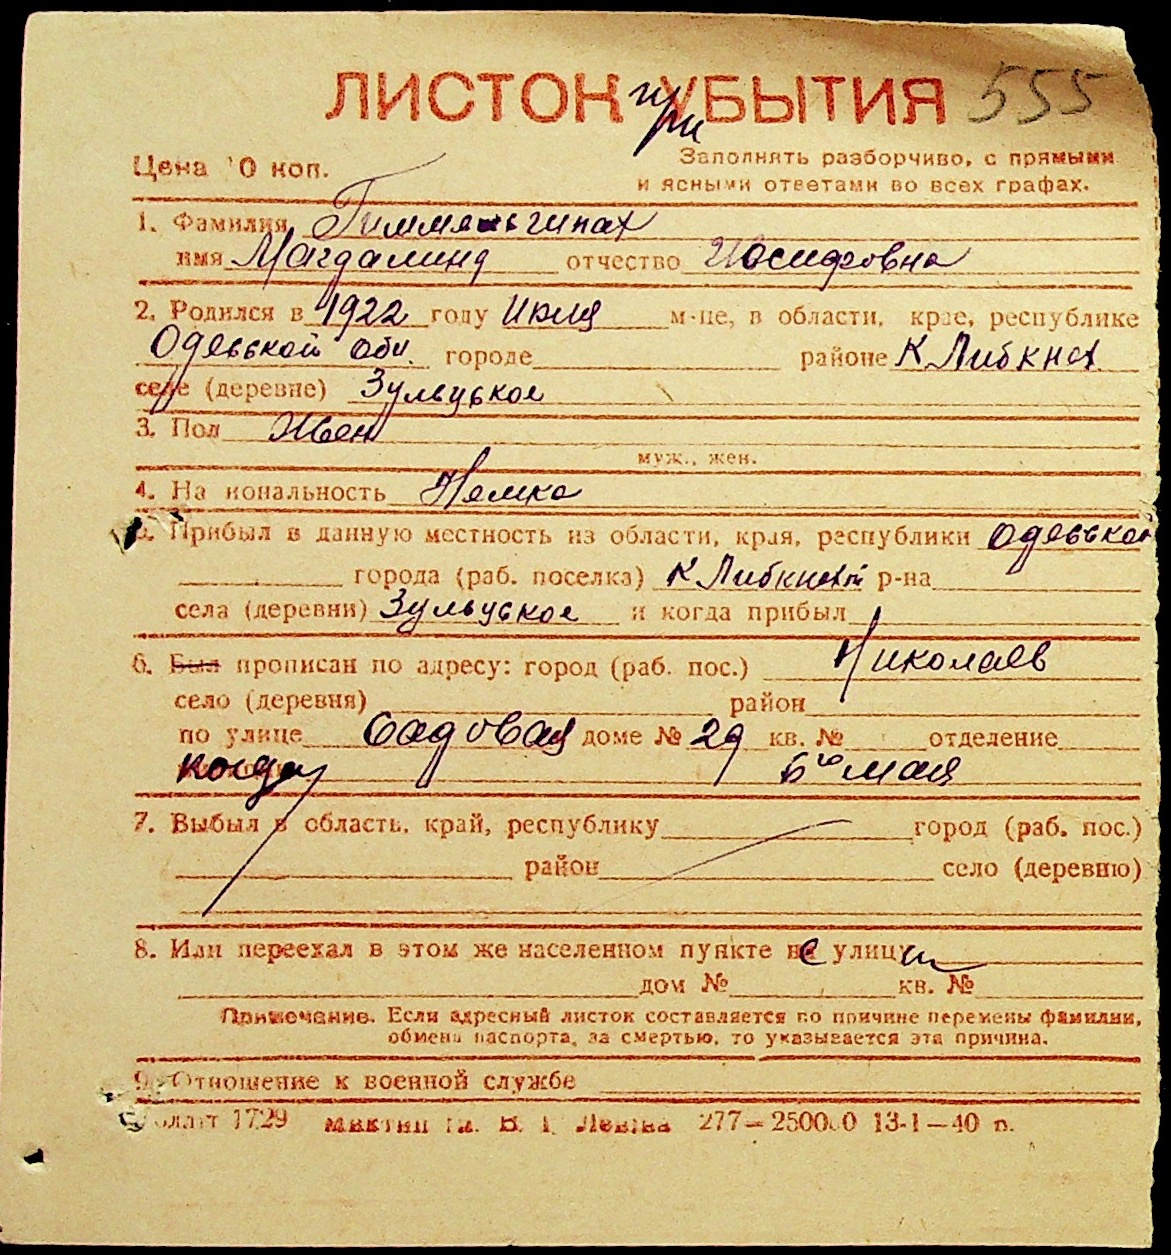 ЛИСТОК УБЫТИЯ 555
при
Цена 10 коп.
Заполнять разборчиво, с прямыми
и ясными ответами во всех графах.
1. Фамилия
имя Магдалина отчество Иосифовна
2. Родился в 1922 году Июля м-це, в области, крае, республике
Одесской обл. городе районе К Либкнех
селе (деревне) Зульцское
3. Пол Жен
муж., жен.
4. Национальность Немка
5. Прибыл в данную местность из области, края, республики Одесской
города (раб. поселка) К Либкнехт р-на
села (деревни) Зульцское и когда прибыл
6. Был прописан по адресу: город (раб. пос.) Николаев
село (деревня) район
по улице Садовая доме № 29 кв. № отделение
когда 6го мая
7. Выбыл в область, край, республику город (раб. пос.)
район село (деревню)
8. Или переехал в этом же населенном пункте с улицы
дом № кв. №
Примечание. Если адресный листок составляется по причине перемены фамилии,
обмена паспорта, за смертью, то указывается эта причина.
9. Отношение к военной службе
1729 277— 13-1—40 п.